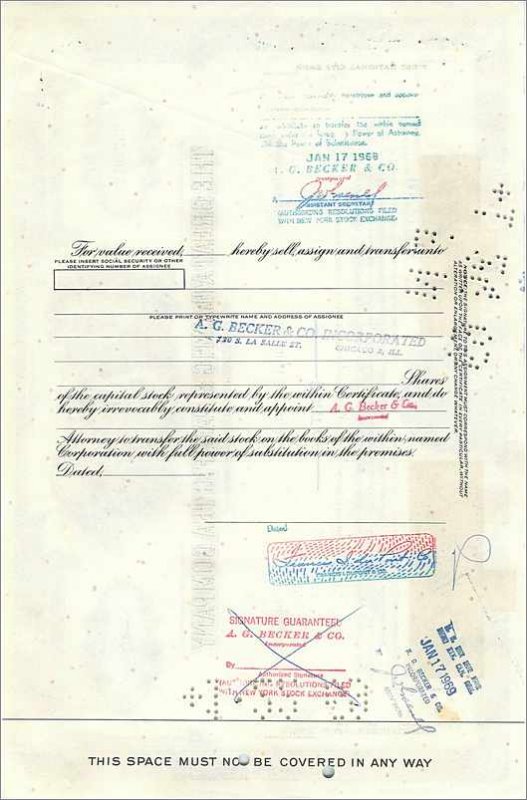 FIRST NATIONAL CITY BANK
to transfer the within named
Power of Attorney
Power of Substitution.
JAN 17 1969
A. G. BECKER & CO.
Incorporated
ASSISTANT SECRETARY
(AUTHORIZING RESOLUTIONS FILED
WITH NEW YORK STOCK EXCHANGE)
For value received, hereby sell, assign and transfer unto
PLEASE INSERT SOCIAL SECURITY OR OTHER
IDENTIFYING NUMBER OF ASSIGNEE
PLEASE PRINT OR TYPEWRITE NAME AND ADDRESS OF ASSIGNEE
A. G. BECKER & CO. INCORPORATED
120 S. LA SALLE ST. CHICAGO 3, ILL.
Shares
of the capital stock represented by the within Certificate, and do
hereby irrevocably constitute and appoint A. G. Becker & Co.
Incorporated
Attorney to transfer the said stock on the books of the within named
Corporation with full power of substitution in the premises.
Dated,
NOTICE: THE SIGNATURE TO THIS ASSIGNMENT MUST CORRESPOND WITH THE NAME
AS WRITTEN UPON THE FACE OF THE CERTIFICATE IN EVERY PARTICULAR, WITHOUT
ALTERATION OR ENLARGEMENT OR ANY CHANGE WHATEVER.
Dated
SIGNATURE GUARANTEED
A. G. BECKER & CO.
Incorporated
By
Authorized Signature
(AUTHORIZING RESOLUTIONS FILED
WITH NEW YORK STOCK EXCHANGE)
JAN 17 1969
A. G. BECKER & CO.
INCORPORATED
THIS SPACE MUST NO BE COVERED IN ANY WAY